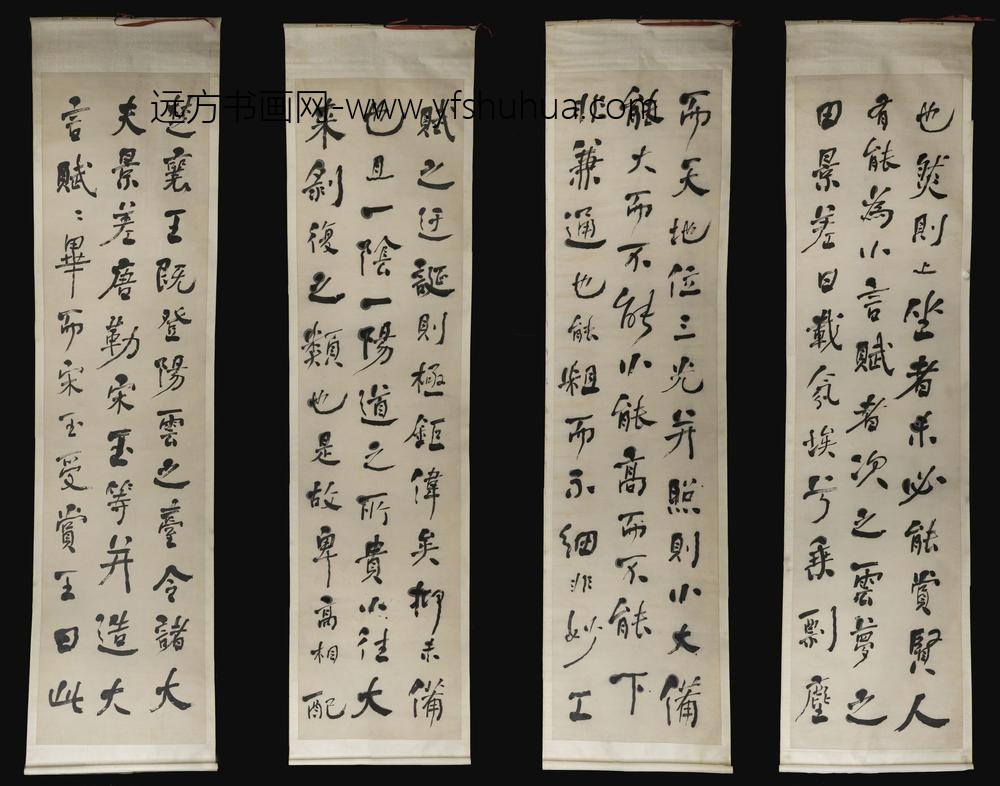 远方书画网-www.yfshuhua.com
楚襄王既登陽雲之臺令諸大
夫景差唐勒宋玉等并造大
言賦〻畢而宋玉受賞王曰此
賦之迂誕則極鉅偉矣抑未備
也且一陰一陽道之所貴小往大
來剝復之類也是故卑高相配
而天地位三光并照則小大備
能大而不能小能高而不能下
非兼通也能粗而不細非妙工
也然則上坐者未必能賞賢人
有能為小言賦者次之雲夢之
田景差曰載氛埃兮乘剽塵